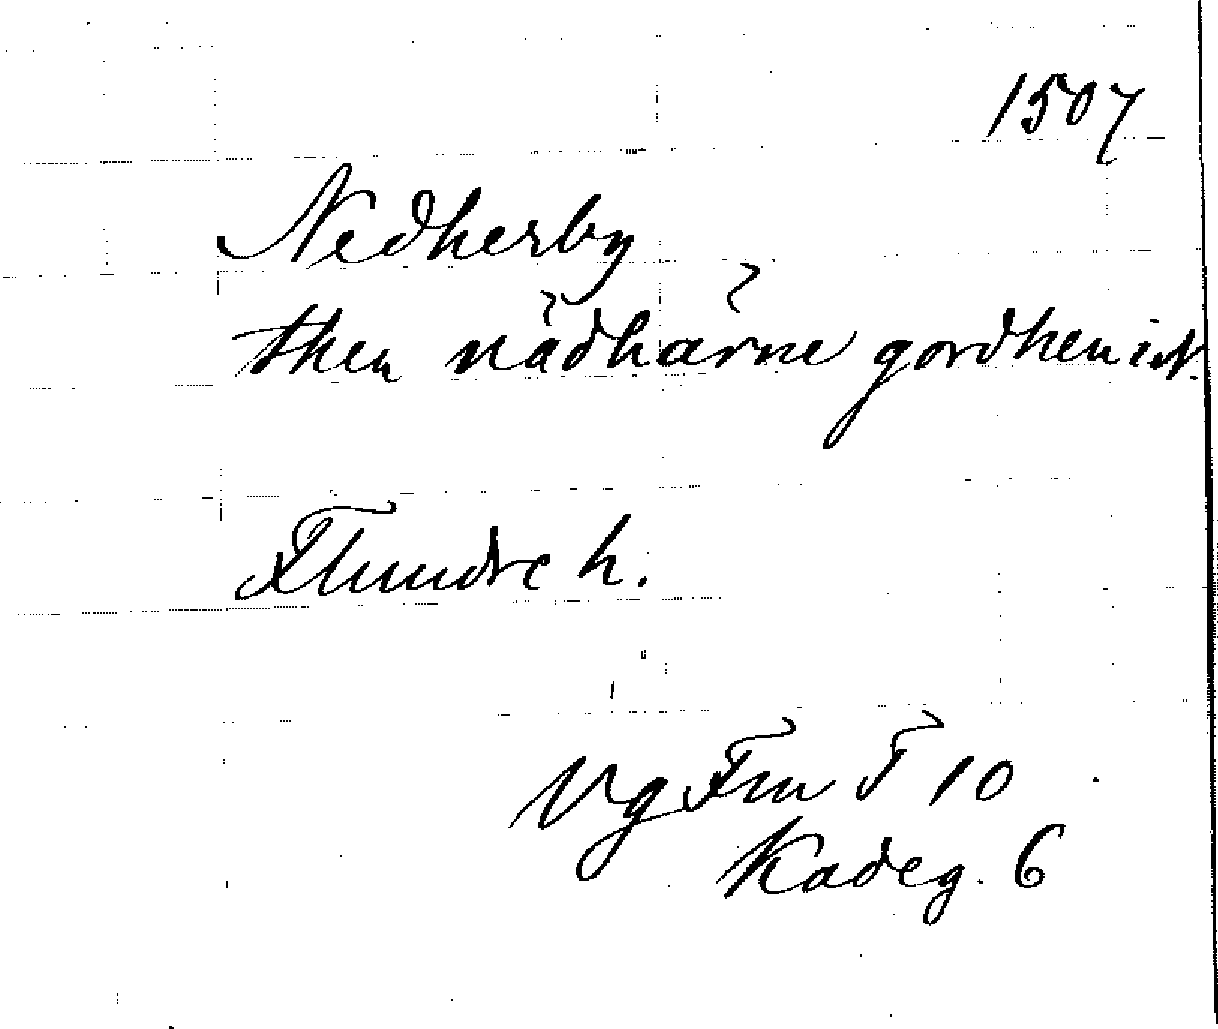 1507
Nedherby
then nädhärne gordhen i N.
Flundre h.
Vg Fm F 10
Kadeg. 6